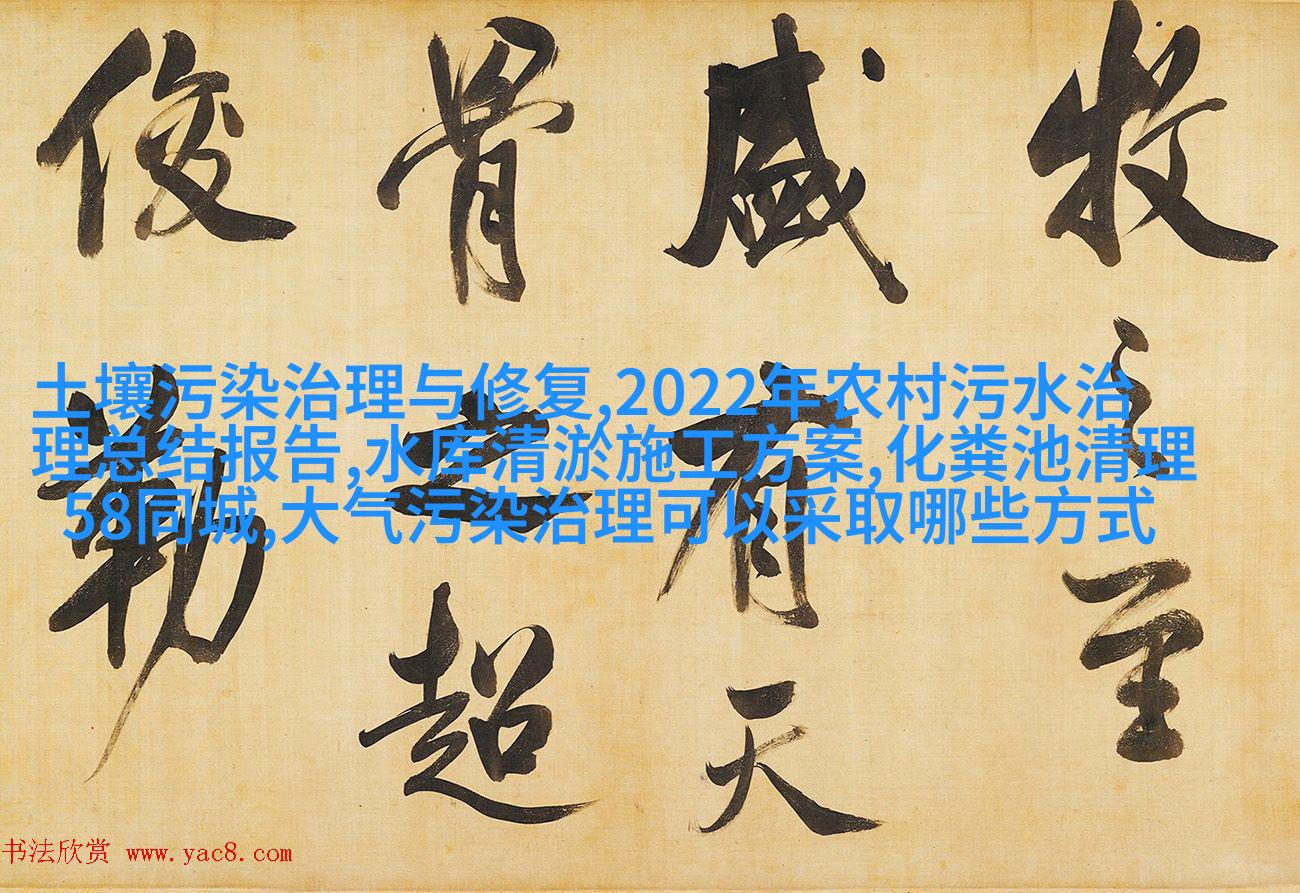 牧之至
盛有天
骨之超
俊勒
土壤污染治理与修复,2022年农村污水治
理总结报告,水库清淤施工方案,化粪池清理
58同城,大气污染治理可以采取哪些方式
书法欣赏 www.yac8.com